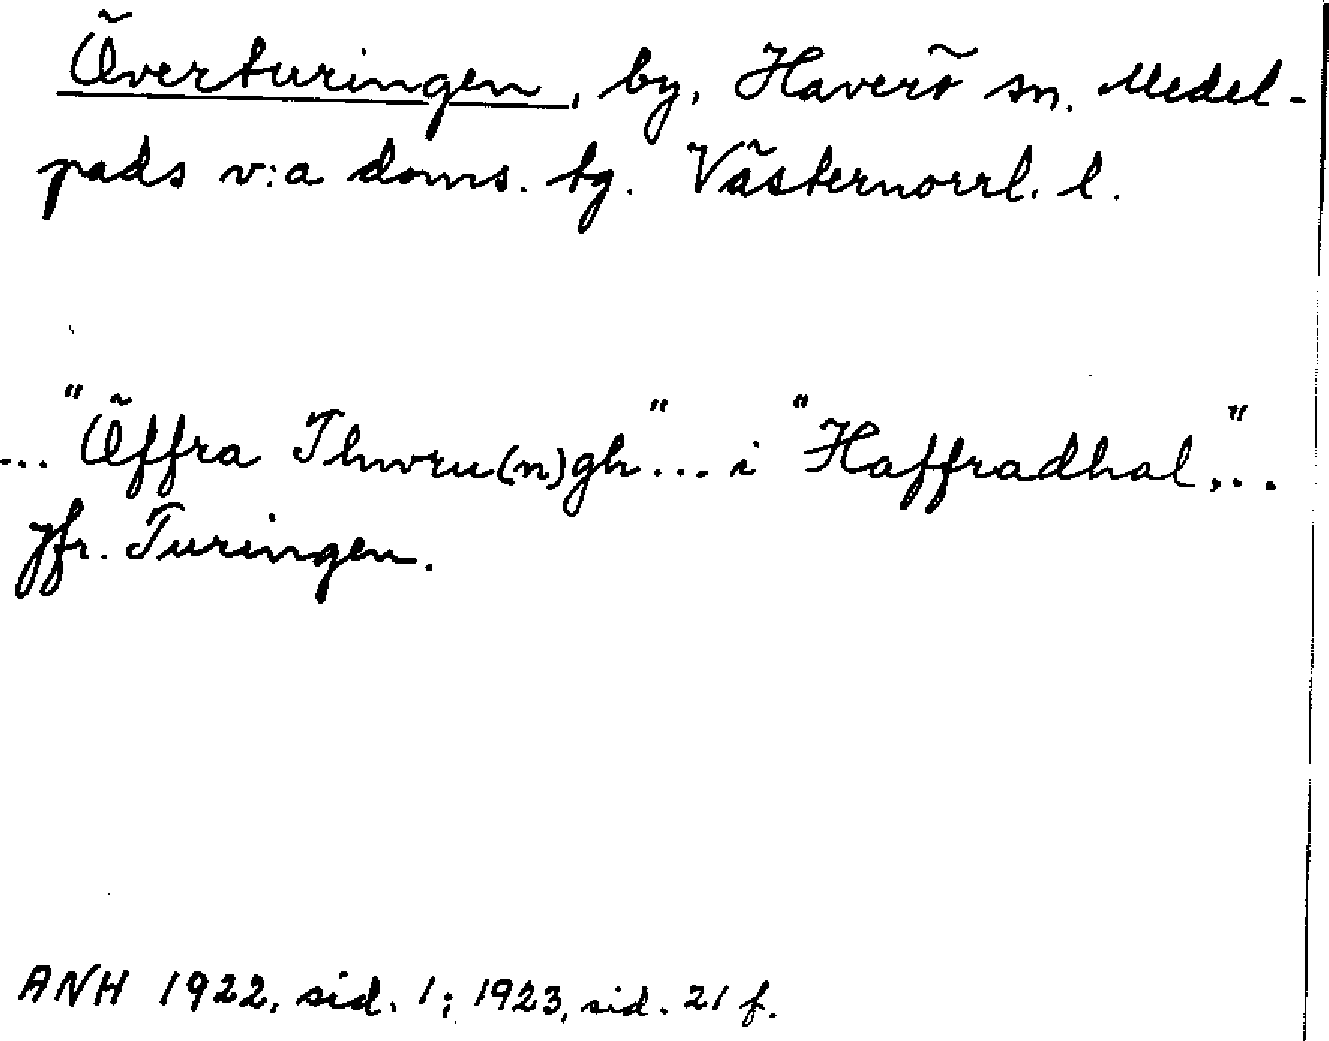 Överturingen, by, Haverö sn. Medel-
pads v:a doms. tg. Västernorrl. l.
... "Öffra Thwru(n)gh" ... i "Haffradhal"...
Jfr. Turingen.
ANH 1922, sid. 1; 1923, sid. 21 f.